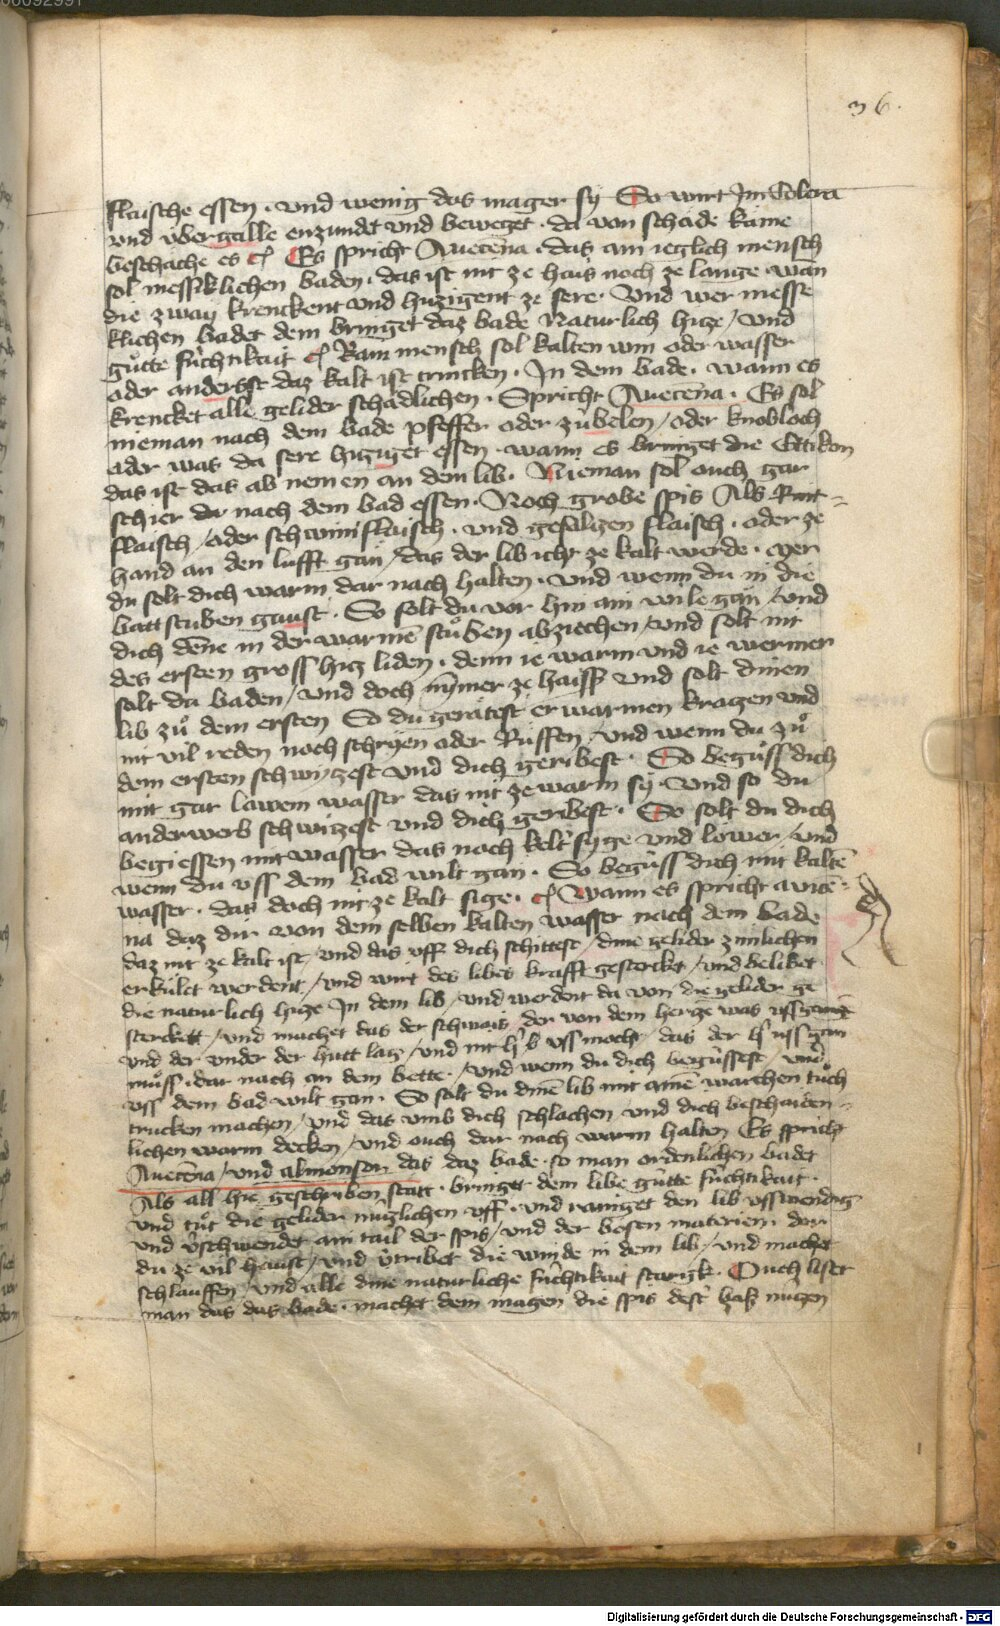 36.
flaische essen · vnd wenig das mager sy So wirt Im Colera
vnd übergalle enzundet vnd beweget · da von schade käme
beschäche es Es spricht Auecena · das ain ieglich mensch
sol messiklichen baden · das ist nit ze hais noch ze lange wan
die zway krenckent vnd hiczigent ze sere · Vnd wer messe
klichen badet dem bringet daz bade Naturlich hicze / vnd
gůtte fúchtikait Kain mensch sol kalten win oder wasser
oder andersst daz kalt ist trincken · In dem bade · wann es
krencket alle gelider schädlichen · Spricht Auecena · Es sol
nieman nach dem bade pfeffer oder zúbelen / oder knobloch
oder was da sere hicziget essen · wann es bringet die Ettikon
das ist das ab nemen an dem lib · Nieman sol ouch gar
schier dar nach dem bad essen · Noch grobe spis Als Rint-
flaisch / oder schwiniflaisch · vnd gesalczen flaisch · oder ze
hand an den lufft gan / das der lib icht ze kalt werde · mer
du solt dich warm dar nach halten · vnd wenn du in die
battstuben gaust · So solt du vor hin ain wile gän / vnd
dich dēne in der warmē stůben abziechen / vnd solt nit
des ersten gross hicz liden · denn ie warm vnd ie wermer
solt du baden / vnd doch nymer ze haiss vnd solt dinen
lib zů dem ersten So du gerätest erwarmen kragen vnd
nit vil reden noch schryen oder Rüffen / vnd wenn du zů
dem ersten schwiczest vnd dich geribest · So begúss dich
mit gar lawem wasser das nit ze warm sy · Vnd so du
anderwerb schwiczest vnd dich geribest · So solt du dich
begiessen mit wasser das noch kelt syge vnd löwer / vnd
wenn du vss dem bad wilt gan · So begúss dich mit kaltē
wasser · das doch nit ze kalt sige · Wann es spricht auice-
na daz dir von dem selben kalten wasser nach dem bade
daz nit ze kalt ist / vnd das vff dich schittest / dine gelider zimlichen
erkúlet werdent / vnd wirt des libes krafft gestercket / vnd belibet
die naturlich hicze In dem lib / vnd werdent da von die gelider ge
sterckett / vnd machet das der schwais der von dem hercze was vssgangē
vnd der vnder der hutt lag / vnd nit vss mocht / das der vssgan
můss · dar nach an dem bette · / vnd wenn du dich begússest / vnd
vss dem bad wilt gan · So solt du dinē lib mit ainē waichen tůch
trucken machen / vnd das vmb dich schlachen vnd dich beschaiden-
lichen warm decken / vnd ouch dar nach warm halten Es spricht
Auecena / vnd almonson das daz bade · so man ordenlichen badet
Als all hie geschriben statt · bringet dem libe gůtte fúchtikait ·
vnd tůt die gelider nuczlichen vff · vnd rainiget den lib vsswendig
vnd vschwendet ain tail der spis / vnd der bösen materien · der
du ze vil haust / vnd vtribet die winde in dem lib / vnd machet
schlauffen / vnd alle dine naturliche fúchtikait starck · Ouch liset
man das das bade · machet dem magen die spis dest bas nuczen
Digitalisierung gefördert durch die Deutsche Forschungsgemeinschaft - DFG